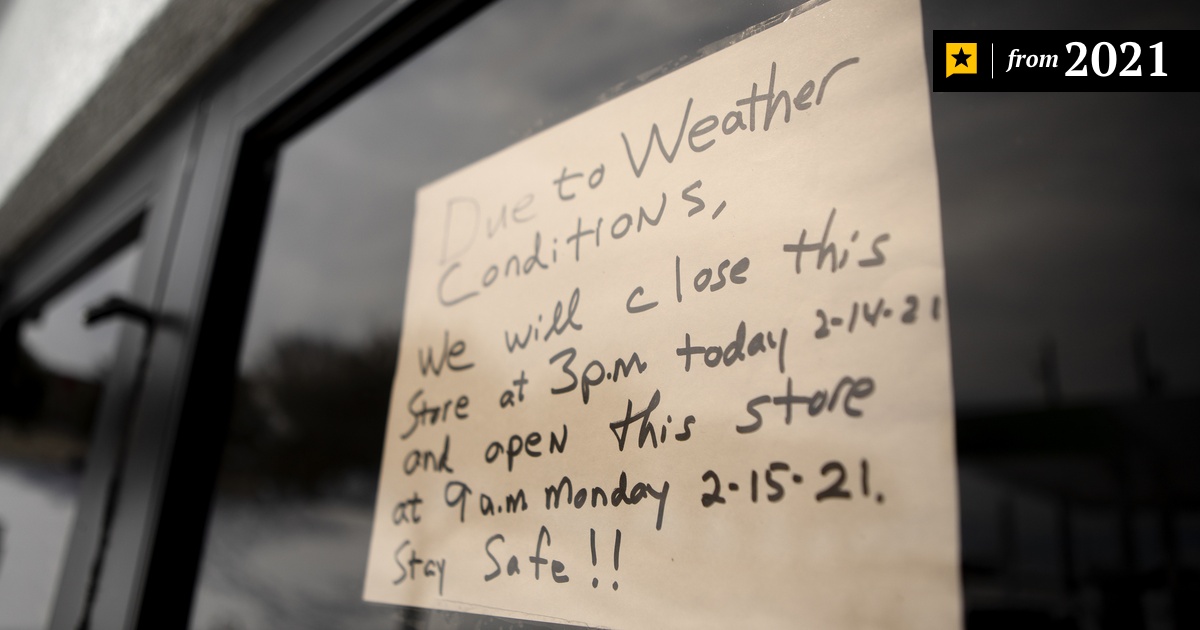 from 2021
Due to Weather
Conditions,
We will close this
Store at 3p.m today 2-14-21
and open this store
at 9a.m Monday 2-15-21.
Stay Safe!!